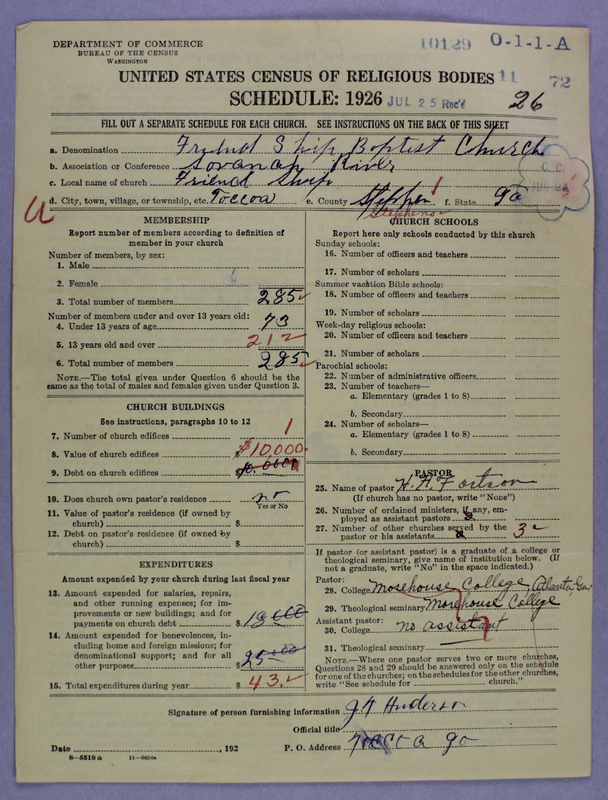 DEPARTMENT OF COMMERCE
BUREAU OF THE CENSUS
WASHINGTON
10129 O-1-1-A
UNITED STATES CENSUS OF RELIGIOUS BODIES 11 72
SCHEDULE: 1926 JUL 25 Rec'd 26
FILL OUT A SEPARATE SCHEDULE FOR EACH CHURCH. SEE INSTRUCTIONS ON THE BACK OF THIS SHEET
a. Denomination Friend Ship Baptist Church
b. Association or Conference Sovanah River
c. Local name of church Friend Ship
d. City, town, village, or township, etc. Toccoa e. County Stephen f. State ga
Stephens
MEMBERSHIP
Report number of members according to definition of member in your church
Number of members, by sex:
1. Male
2. Female
3. Total number of members 285
Number of members under and over 13 years old:
4. Under 13 years of age 73
5. 13 years old and over 212
6. Total number of members 285
NOTE.—The total given under Question 6 should be the
same as the total of males and females given under Question 3.
CHURCH BUILDINGS
See instructions, paragraphs 10 to 12
7. Number of church edifices 1
8. Value of church edifices $10,000.
9. Debt on church edifices
10. Does church own pastor's residence no
Yes or No
11. Value of pastor's residence (if owned by
church) $
12. Debt on pastor's residence (if owned by
church) $
EXPENDITURES
Amount expended by your church during last fiscal year
13. Amount expended for salaries, repairs,
and other running expenses; for im-
provements or new buildings; and for
payments on church debt $
14. Amount expended for benevolences, in-
cluding home and foreign missions; for
denominational support; and for all
other purposes $25
15. Total expenditures during year $ 43.
CHURCH SCHOOLS
Report here only schools conducted by this church
Sunday schools:
16. Number of officers and teachers
17. Number of scholars
Summer vacation Bible schools:
18. Number of officers and teachers
19. Number of scholars
Week-day religious schools:
20. Number of officers and teachers
21. Number of scholars
Parochial schools:
22. Number of administrative officers
23. Number of teachers—
a. Elementary (grades 1 to 8)
b. Secondary
24. Number of scholars—
a. Elementary (grades 1 to 8)
b. Secondary
PASTOR
25. Name of pastor H. A. Fortson
(If church has no pastor, write "None")
26. Number of ordained ministers, if any, em-
ployed as assistant pastors
27. Number of other churches served by the
pastor or his assistants 3
If pastor (or assistant pastor) is a graduate of a college or
theological seminary, give name of institution below. (If
not a graduate, write "NO" in the space indicated.)
Pastor:
28. College Morehouse College, Atlanta, Ga
29. Theological seminary Morehouse College
Assistant pastor:
30. College no assistant
31. Theological seminary
NOTE.—Where one pastor serves two or more churches,
Questions 28 and 29 should be answered only on the schedule
for one of the churches; on the schedules for the other churches,
write "See schedule for church."
Signature of person furnishing information
Official title
Date , 192 P. O. Address Toccoa ga
8—5518 a